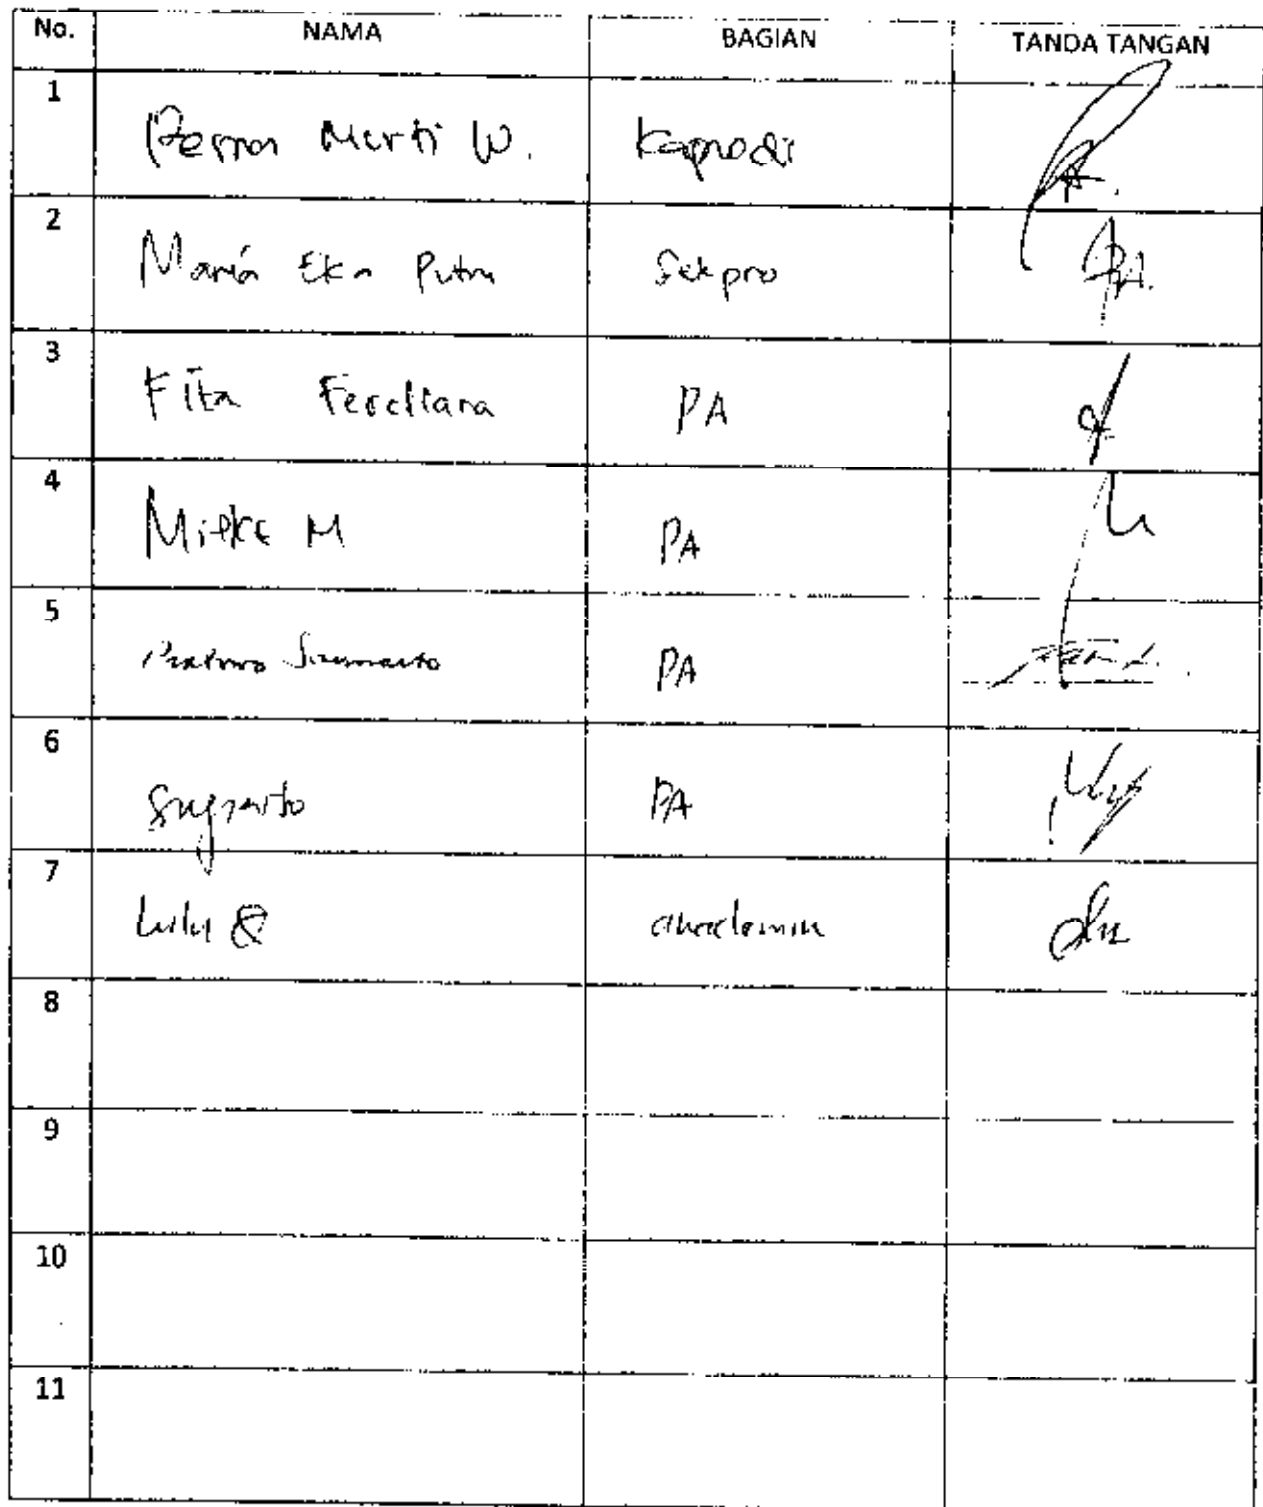 No. NAMA BAGIAN TANDA TANGAN
1 Murti W. Kaprodi
2 Maria Eka Putri Sekpro
3 Fita Ferdiana PA
4 Mieke M PA
5 PA
6 Sugiarto PA
7 Lulu akademik
8
9
10
11